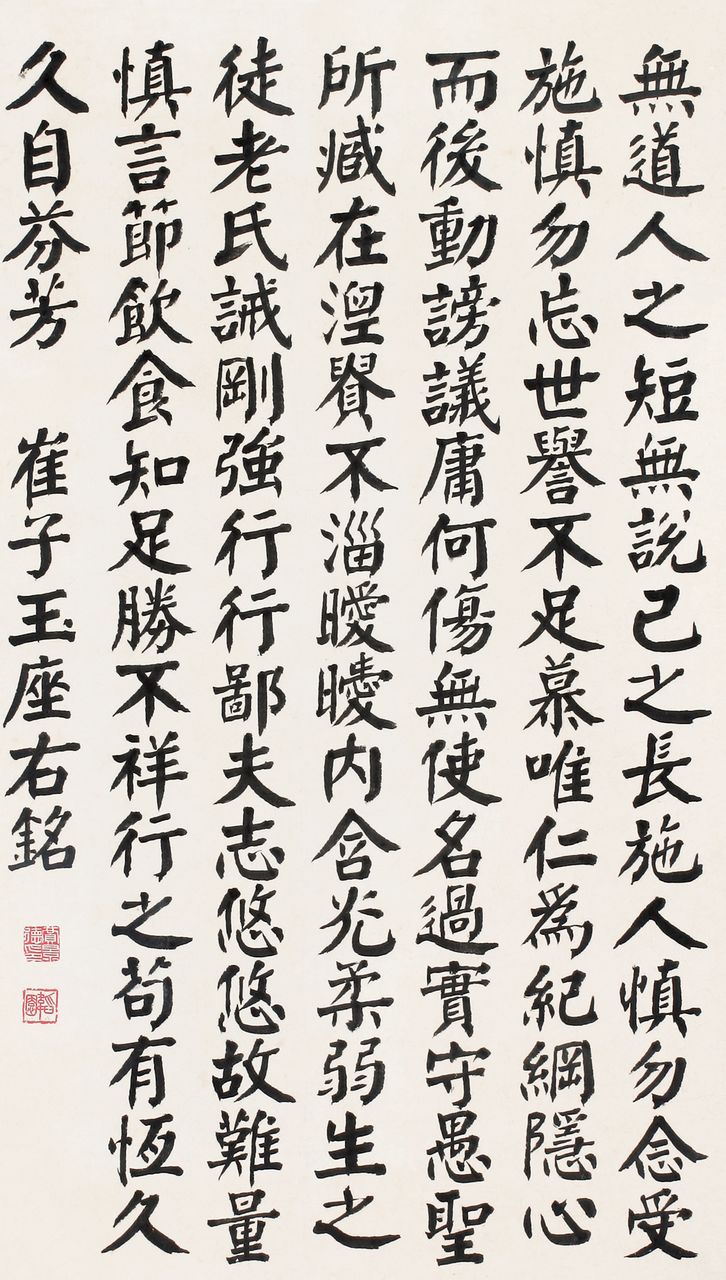 無道人之短無說己之長施人慎勿念受
施慎勿忘世譽不足慕唯仁爲紀綱隱心
而後動謗議庸何傷無使名過實守愚聖
所臧在涅貴不淄曖曖內含光柔弱生之
徒老氏誡剛強行行鄙夫志悠悠故難量
慎言節飲食知足勝不祥行之苟有恆久
久自芬芳 崔子玉座右銘